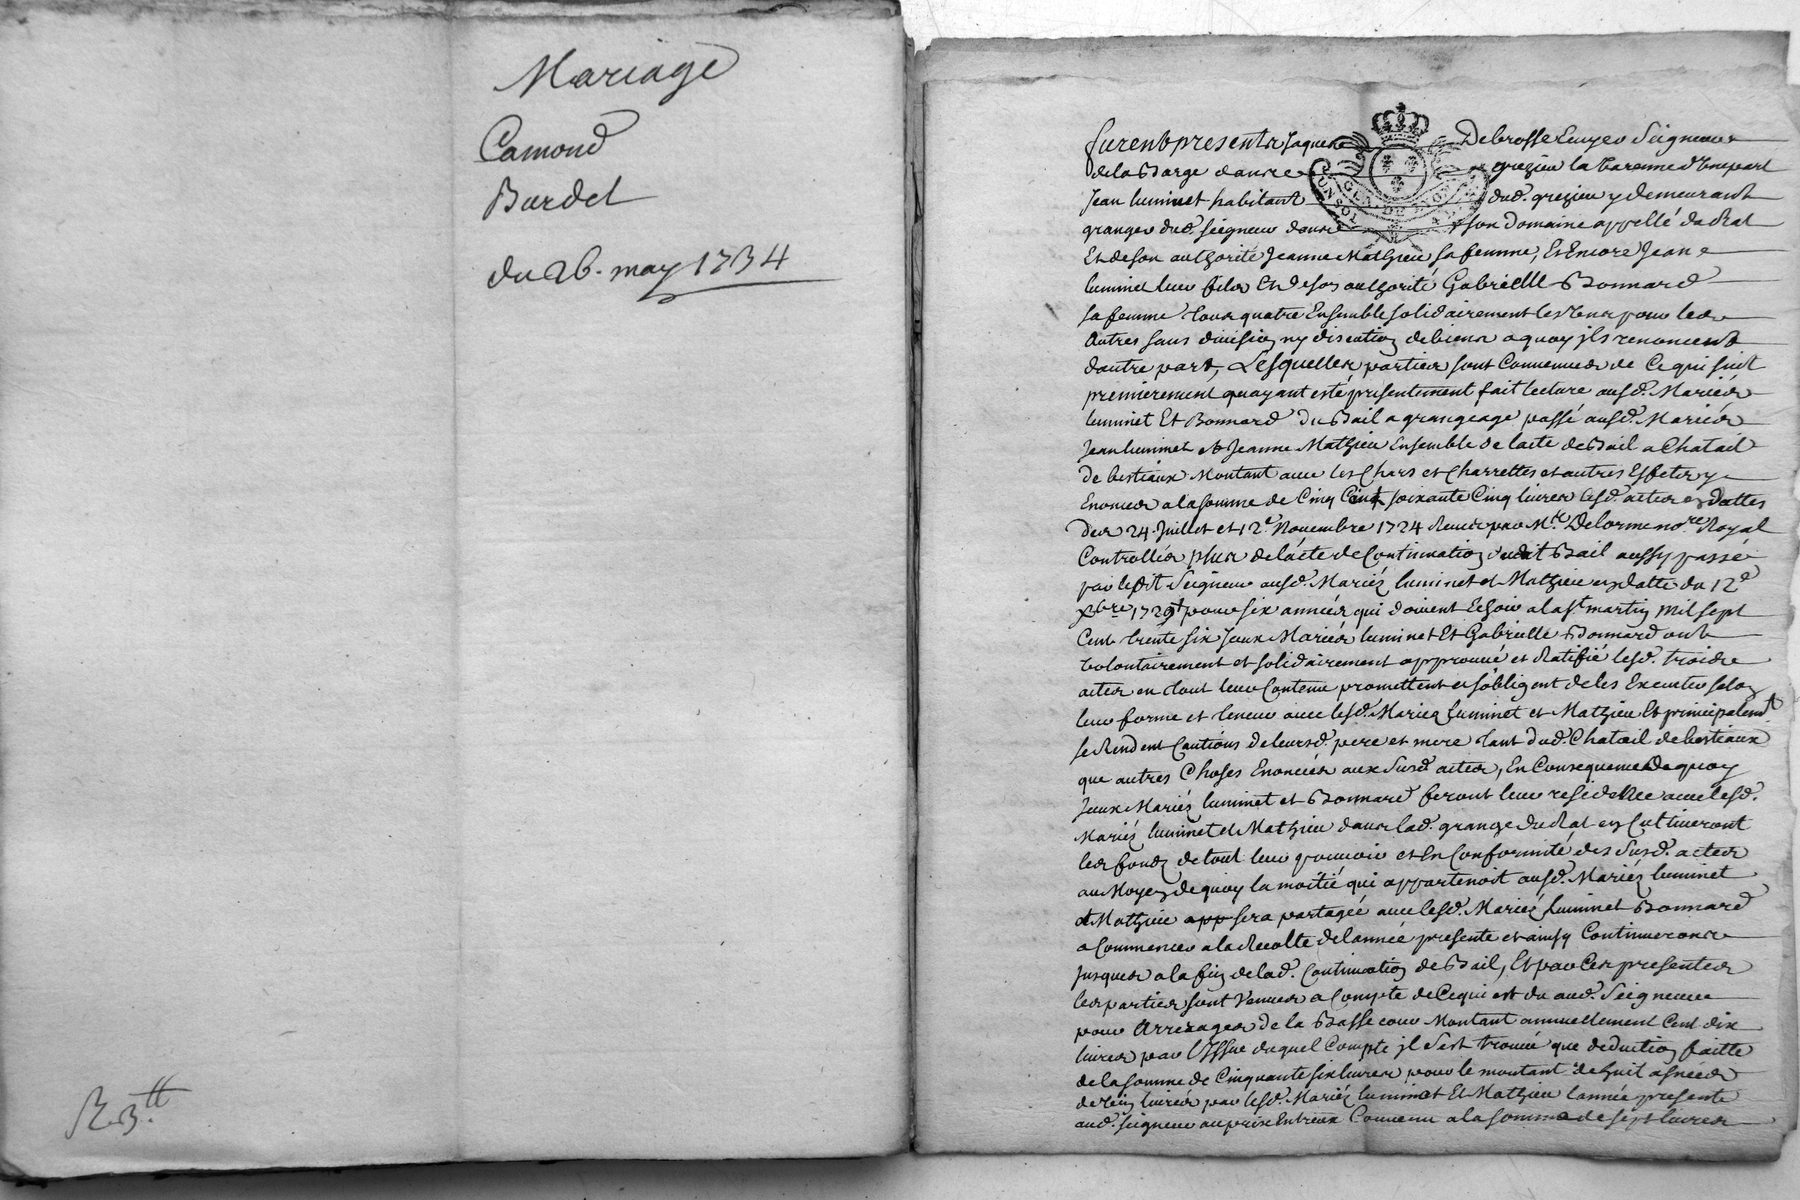 Mariage
Camond
Burdel
du 26. may 1734
R. 3.tt
furent presents Jaques Debrosse Ecuyer Seigneur
de la Barge dans grezieu la varenne d'Une part
Jean luminet habitant dud. grezieu y demeurant
granger dud. seigneur dans son domaine appellé du Rat
Et de son authorité Jeanne Mathieu sa femme, Et Encore Jean
luminet leur fils Et de son authorité Gabrielle Bonnard
sa femme tous quatre Ensemble solidairement les Uns pour les
Autres sans division ny discution de biens a quoy jls renoncent
d'autre part, Lesquelles parties sont Convenues de Ce qui suit
premierement quayant esté presentement fait lecture ausd. Mariés
luminet Et Bonnard du Bail a grangeage passé ausd. Mariés
Jean luminet et Jeanne Mathieu Ensemble de l'acte de Bail a Chatail
de bestiaux Montant avec les Chars et Charrettes et autres Effets y
Enoncés a la somme de Cinq Cent soixante Cinq livres lesd. actes en dattes
des 24 Juillet et 12e Novembre 1724 Receus par Me Delorme nore Royal
Controllés plus de l'acte de Continuation dudit Bail aussy passé
par ledit Seigneur ausd. Mariés luminet et Mathieu en datte du 12e
Xbre 1729 pour six années qui doivent Echoir a la st martin Mil sept
Cent trente six Jceux Mariés luminet Et Gabrielle Bonnard ont
volontairement et solidairement approuvé et Ratifié lesd. trois
actes en tout leur Contenu promettent et s'obligent de les Executer selon
leur forme et teneur avec lesd. Mariés Luminet et Mathieu Et principalemt
se Rendent Cautions de leursd. pere et mere tant dud. Chatail de bestiaux
que autres Choses Enoncées aux Susd. actes, En Consequence De quoy
Jceux Mariés luminet et Bonnard feront leur residence avec lesd.
Mariés luminet et Mathieu dans lad. grange du Rat en Cultiveront
les fonds de tout leur pouvoir et En Conformité des Susd. actes
au Moyen de quoy la moitié qui appartenoit ausd. Mariés luminet
et Mathieu app sera partagée avec lesd. Mariés Luminet Bonnard
a Commencer a la Recolte de l'année presente et ainsy Continueront
Jusques a la fin de lad. Continuation de Bail, Et par Ces presentes
les parties sont Venues a Compte de Ce qui est du aud. Seigneur
pour Arrerages de la Basse cour Montant annuellement Cent dix
livres par l'Issue duquel Compte jl s'est trouvé que deduction faitte
de la somme de Cinquante six livres pour le montant de huit asnées
de vin livrés par lesd. Mariés luminet Et Mathieu l'année presente
aud. seigneur au prix Entreux Convenu a la somme de sept livres